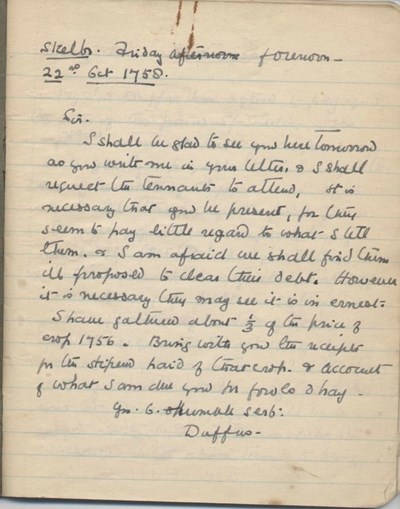 Skelbo. Friday afternoon forenoon –
22nd Oct 1758.
Sir.
I shall be glad to see you here tomorrow
as you write me in your letter. & I shall
request the tennants to attend, it is
necessary that you be present, for they
seem to pay little regard to what I tell
them. & I am afraid we shall find them
ill proposed to clear their debt. However
it is necessary they may see it is in ernest:
I have gathered about 1/3 of the price of
crop 1756. Bring with you the receipts
for the stipend paid of that crop. & account
of what I am due you for fowls & hay –
Yr. o. Humble Serb:
Duffus –